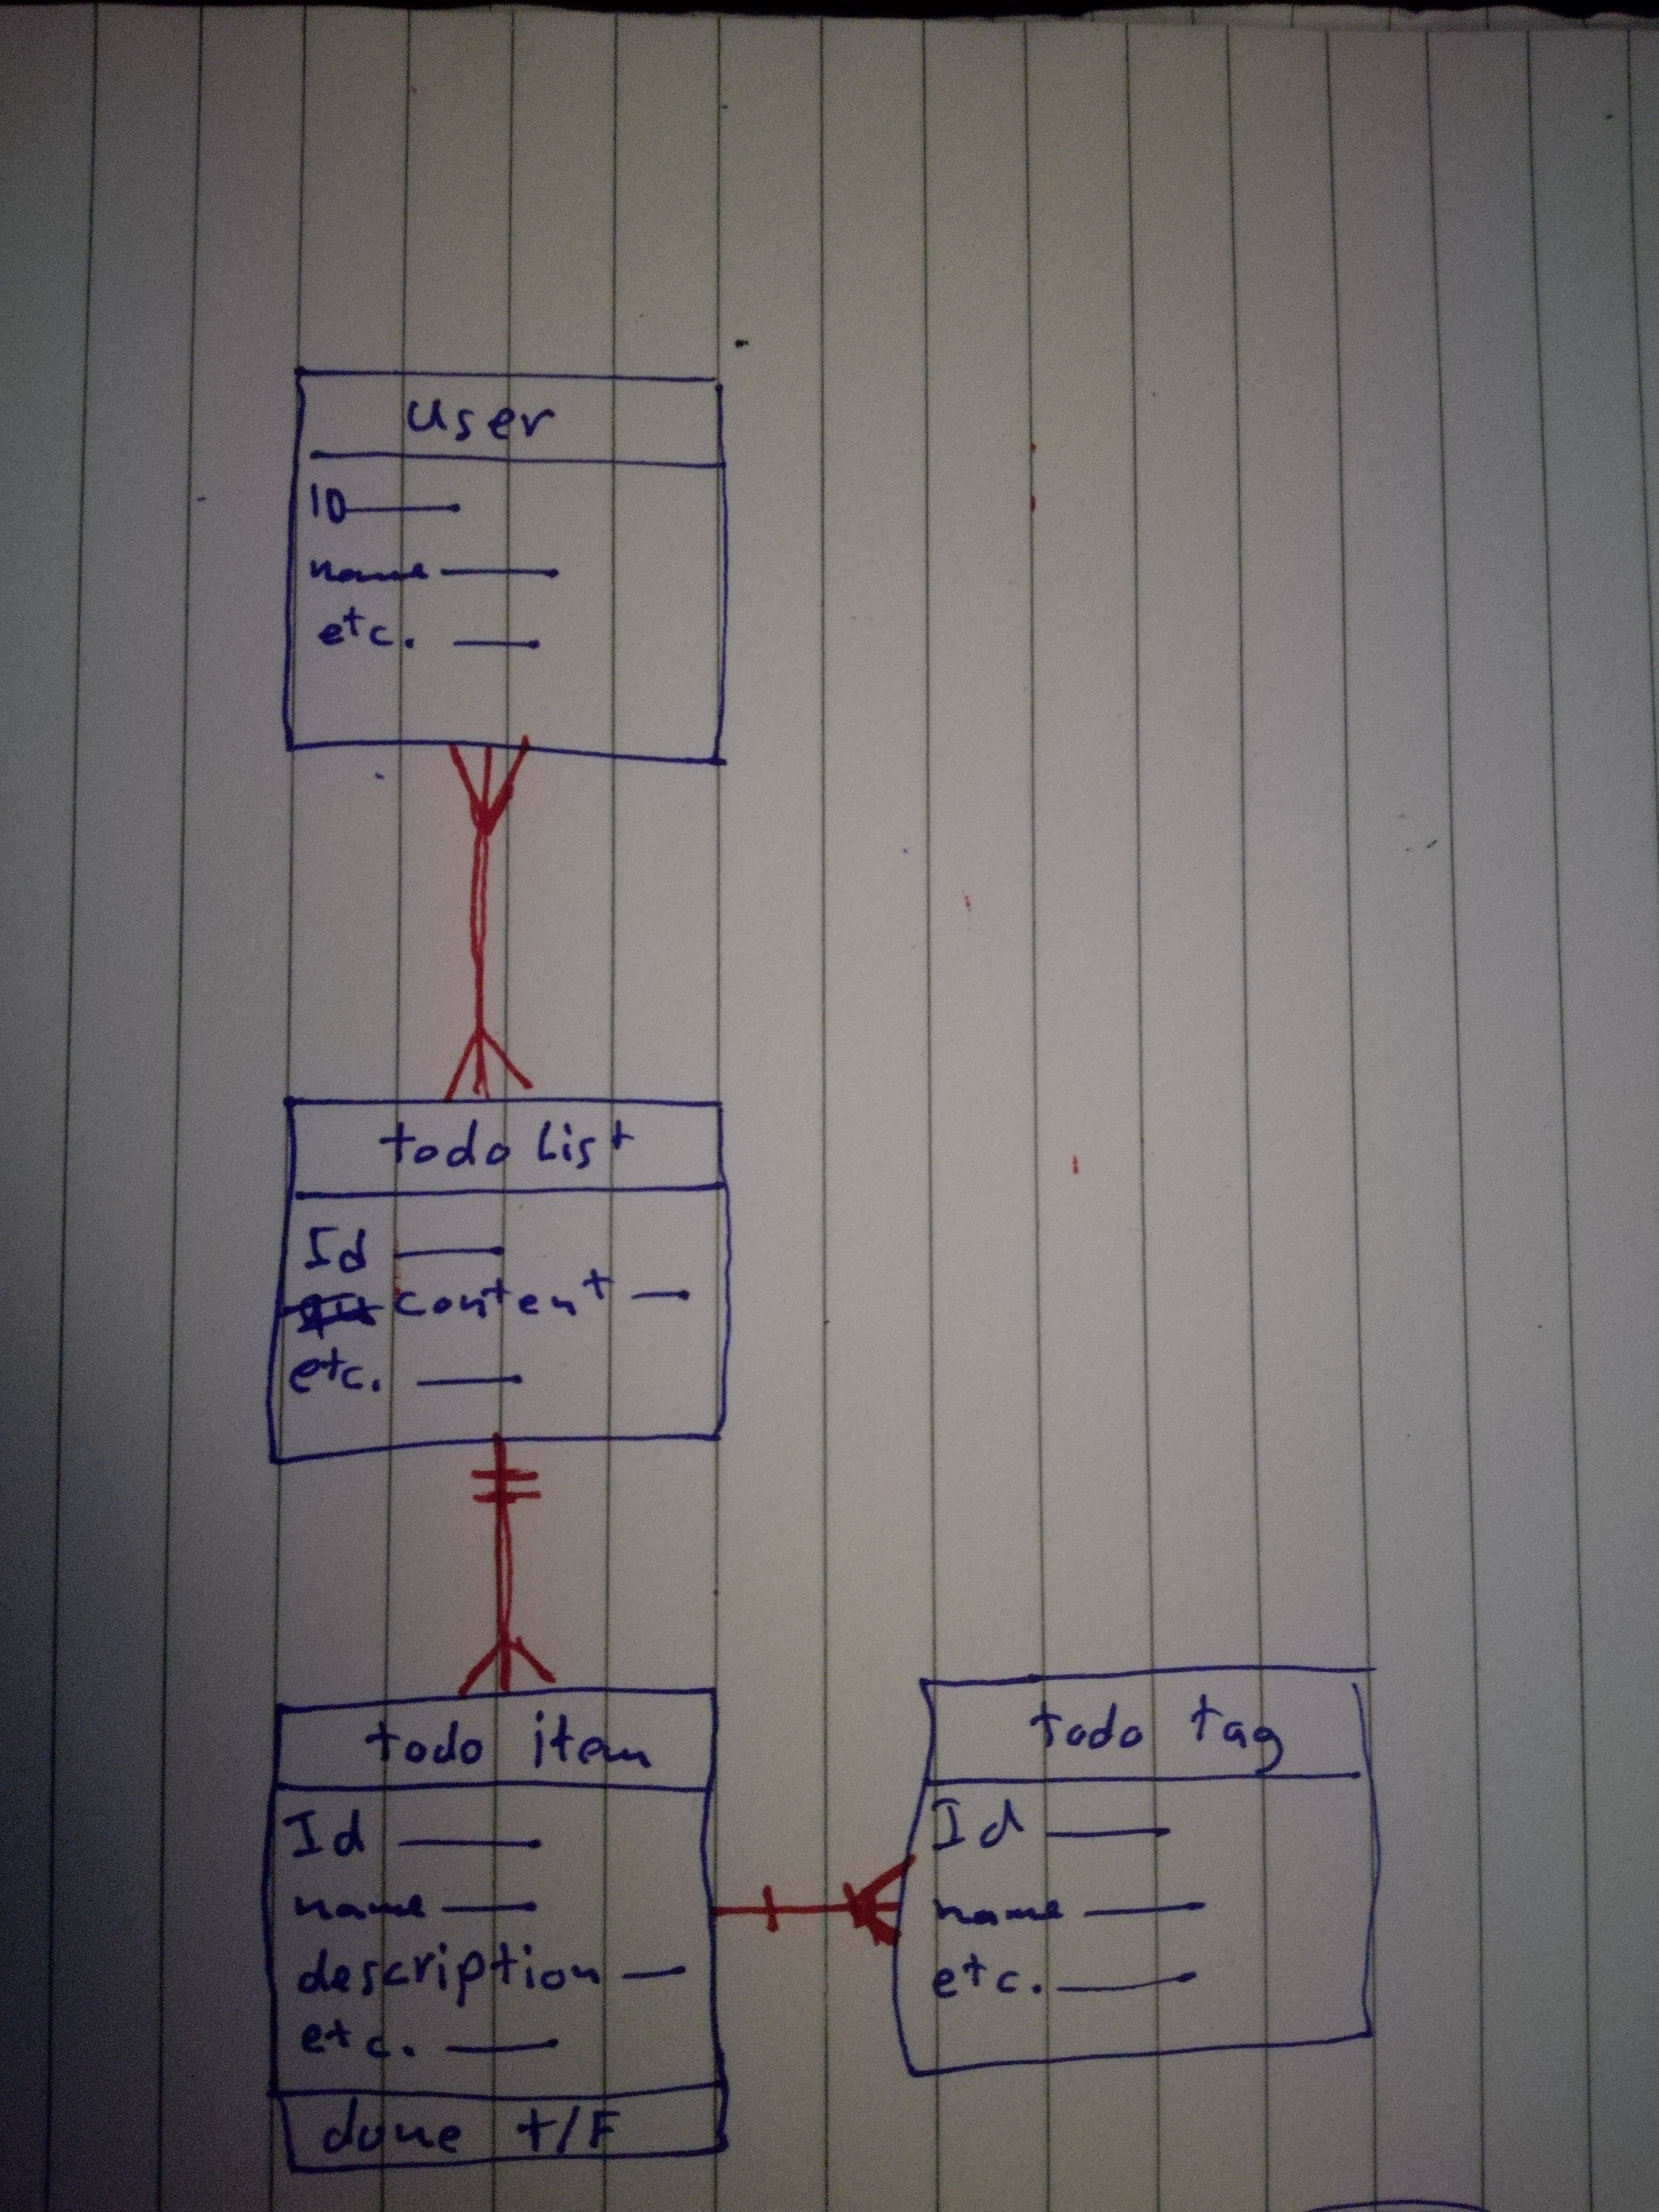 user
ID
name
etc.
todo List
Id
content
etc.
todo item
Id
name
description
etc.
done t/F
todo tag
Id
name
etc.